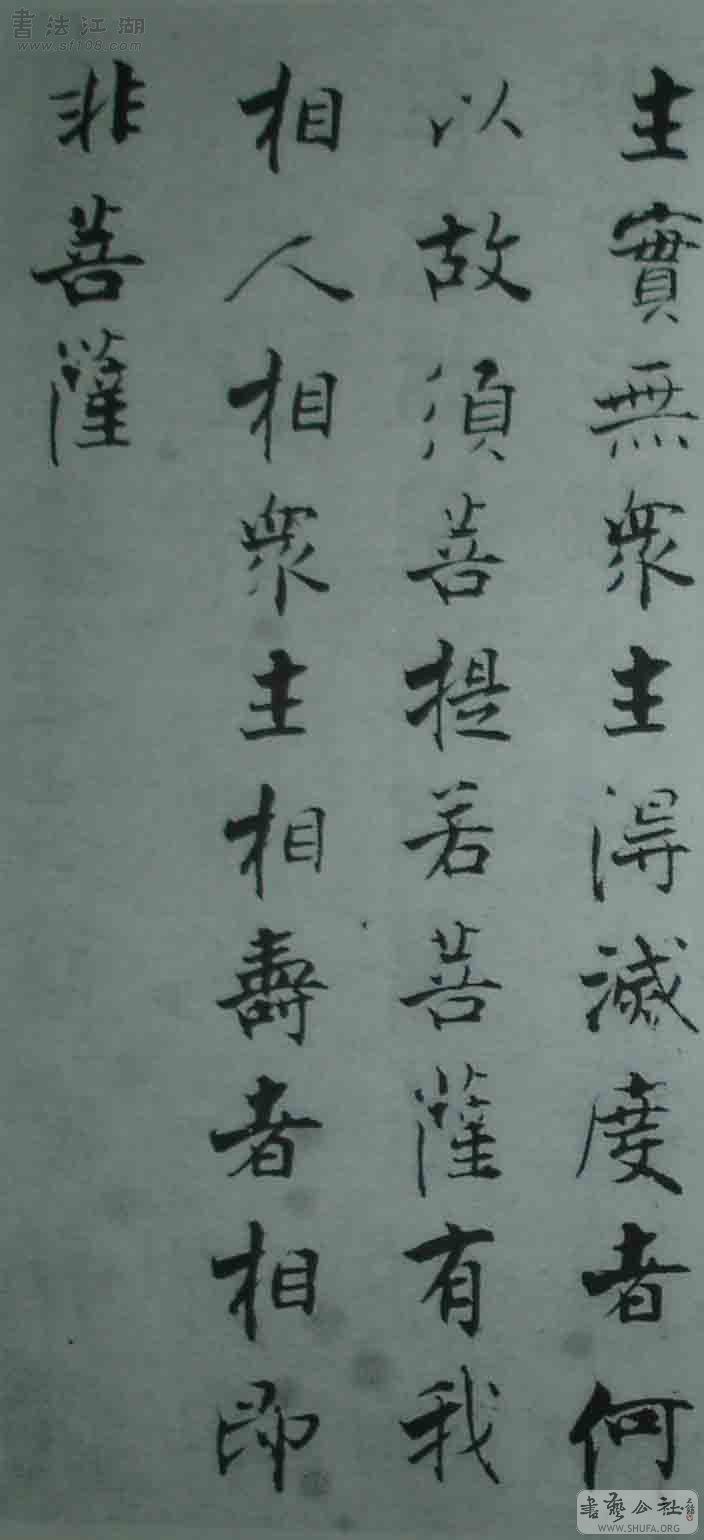 主實無衆主得滅度者何
以故須菩提若菩薩有我
相人相衆主相壽者相即
非菩薩
書法江湖
www.sf108.com
書藝公社
WWW.SHUFA.ORG